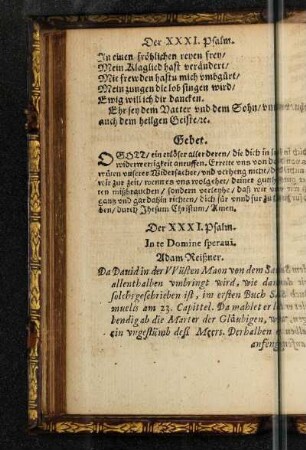 Der XXXI. Psalm.
In einen fröhlichen reyen frey/
Mein Klaglied hast verändert/
Mit frewden hastu mich vmbgürt/
Mein zungen die lob singen wird/
Ewig will ich dir dancken.
Ehr sey dem Vatter vnd dem Sohn/
auch dem heilgen Geiste/ꝛc.
Gebet.
O GOTT/ ein erlöser aller deren/ die dich in
widerwertigkeit anruffen. Errette vns von
vnsern Widersacher/ vnd verheng nicht/
wir zur zeit/ wenn es vns wolgehet/ deiner
ten mißbrauchen/ sondern verleyhe/ daß wir
gantz vnd gar dahin richten/ dich für vnnd für
ben/ durch Jhesum Christum/ Amen.
Der XXXI. Psalm.
In te Domine speraui.
Adam Reißner.
Da Dauid in der VVüsten Maon von dem
allenthalben vmbringt wird, wie dann
solchs geschrieben ist, im ersten Buch
muelis am 23. Capittel. Da mahlet er
bendig ab die Marter der Gläubigen,
ein vngestümb deß Meers. Derhalben
anfing